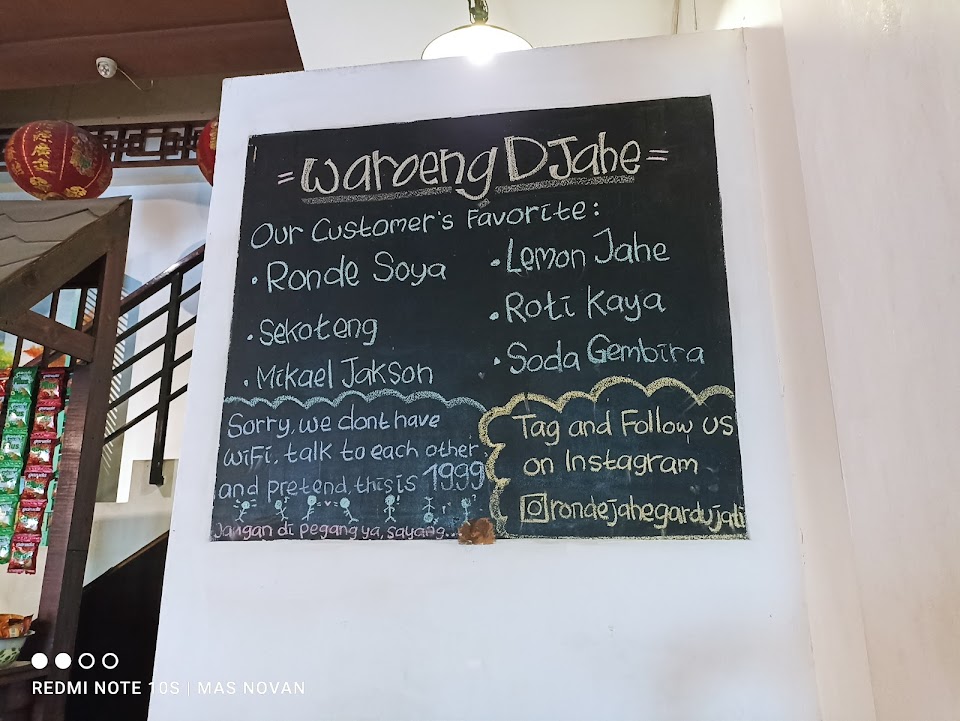 = Waroeng DJahe =
Our Customer's Favorite:
• Ronde Soya
• Sekoteng
• Mikael Jakson
• Lemon Jahe
• Roti Kaya
• Soda Gembira
Sorry, we dont have
WiFi, talk to each other
and pretend, this is 1999
Jangan di pegang ya, sayang...
Tag and Follow us
on Instagram
rondejahegardujati
REDMI NOTE 10S | MAS NOVAN